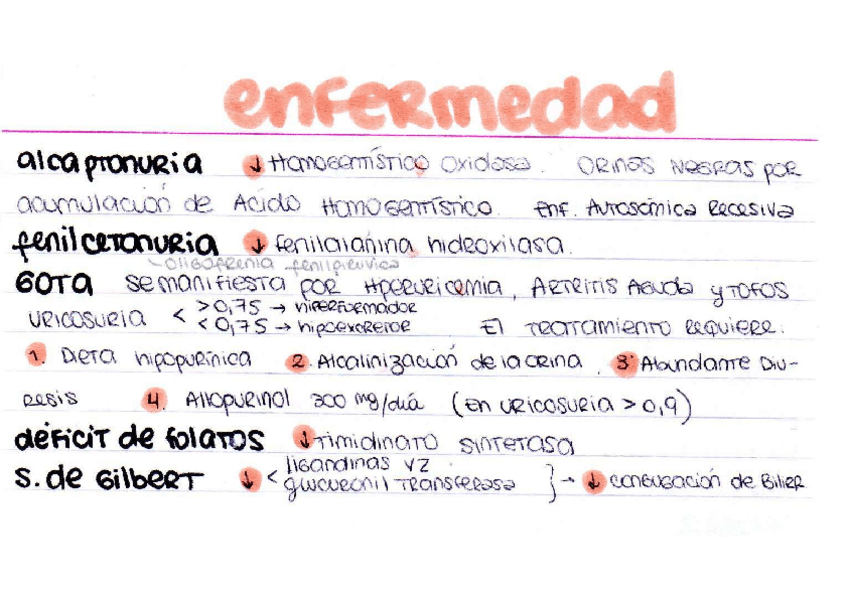 enfermedad
alcaptonuria ↓ Homogentístico oxidasa. Orinas negras por
acumulación de Ácido Homogentístico. Enf. Autosómica Recesiva
fenilcetonuria ↓ fenilalanina hidroxilasa.
oligofrenia fenilpirúvica
GOTA se manifiesta por Hiperuricemia, Artritis Aguda y TOFOS
uricosuria < >0,75 → hiperformador
<0,75 → hipoexcretor El tratamiento requiere:
1. Dieta hipopurínica 2. Alcalinización de la orina, 3. Abundante Diu-
resis 4. Allopurinol 300 mg/día (en uricosuria > 0,9)
déficit de folatos ↓ timidinato sintetasa
S. de Gilbert ↓ < ligandinas YZ
glucuronil transferasa } → ↓ conjugación de Bilirr